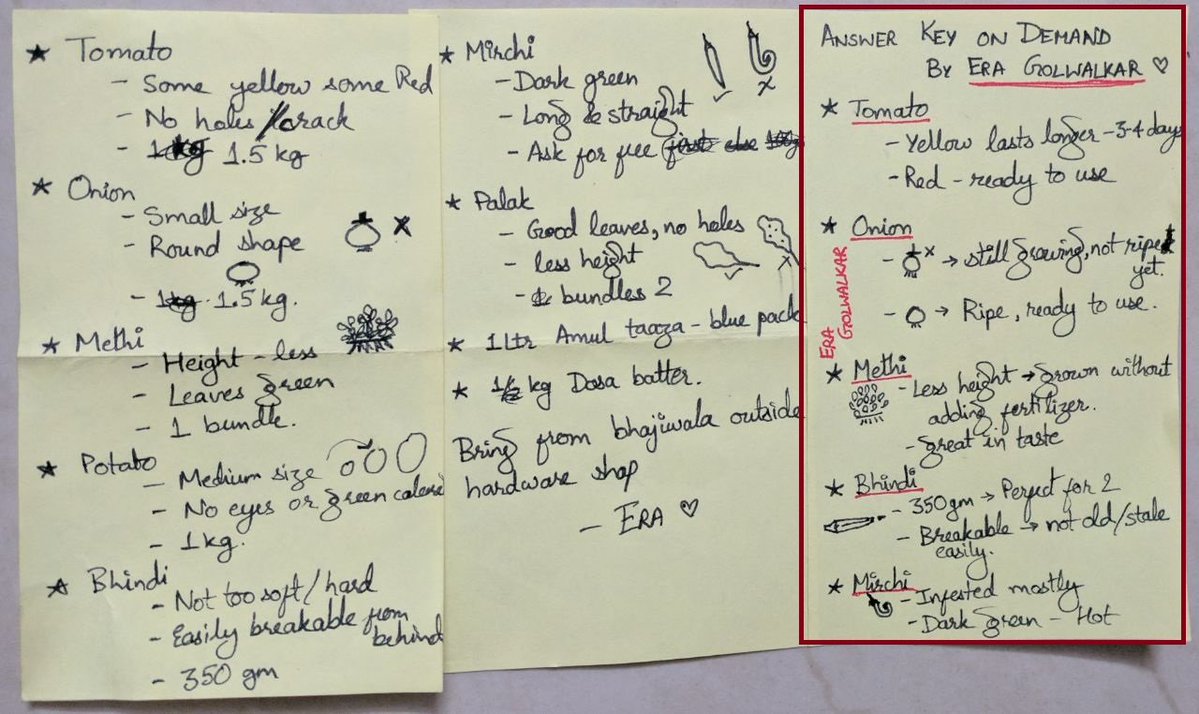 ★ Tomato
- Some yellow some Red
- No holes / crack
- 1.5 kg
★ Onion
- Small size
- Round shape
- 1.5 kg.
★ Methi
- Height - less
- Leaves green
- 1 bundle.
★ Potato
- Medium size
- No eyes or green colored
- 1 kg.
★ Bhindi
- Not too soft / hard
- Easily breakable from
behind
- 350 gm
★ Mirchi
- Dark green
- Long & straight
- Ask for free
★ Palak
- Good leaves, no holes
- less height
- bundles 2
★ 1 ltr Amul taaza - blue pack
★ kg Dosa batter.
Bring from bhajiwala outside
hardware shop
- ERA ♡
ANSWER KEY ON DEMAND
BY ERA GOLWALKAR ♡
★ Tomato
- Yellow lasts longer - 3-4 days
- Red - ready to use
★ Onion
- x → still growing, not ripe
yet.
- → Ripe, ready to use.
ERA
GOLWALKAR
★ Methi
- Less height → grown without
adding fertilizer.
- great in taste
★ Bhindi
- 350gm → Perfect for 2
- Breakable → not old/stale
easily.
★ Mirchi
- Infested mostly
- Dark green - Hot